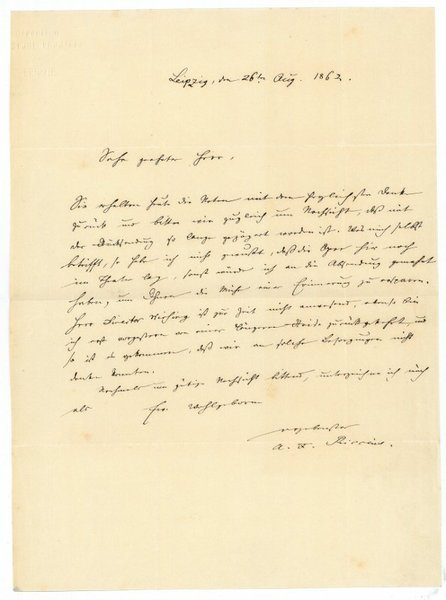 Leipzig, den 26ten Aug. 1862.
Sehr geehrter Herr,
Sie erhalten hier die Noten mit dem herzlichsten Dank
zurück und bitten wir zugleich um Nachsicht, daß mit
der Rücksendung so lange gezögert worden ist. Was mich selbst
betrifft, so habe ich nicht gewußt, daß die Oper hier noch
im Theater lag, sonst würde ich an die Absendung gemahnt
haben, um Ihnen die Mühe einer Erinnerung zu ersparen.
Herr Director Wirsing ist zur Zeit nicht anwesend, ebenso bin
ich erst vorgestern von einer längeren Reise zurückgekehrt, und
so ist es gekommen, daß wir an solche Besorgungen nicht
denken konnten.
Nochmals um gütige Nachsicht bittend, unterzeichne ich mich
als Ew. Wohlgeboren
ergebenster
A. F. Riccius.